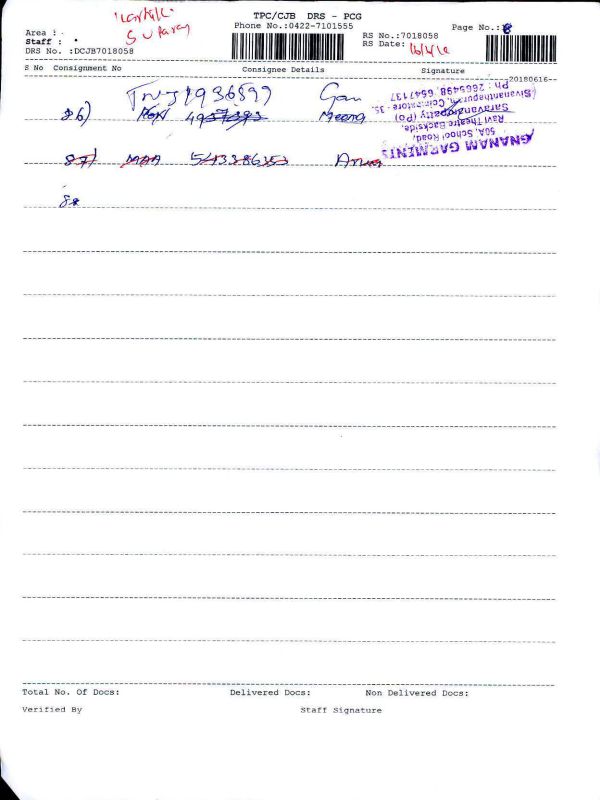 TPC/CJB DRS - PCG
Phone No.:0422-7101555
Page No.: 8
Area :
Staff :
DRS No. :DCJB7018058
RS No.:7018058
RS Date: 16/6/16
S No Consignment No Consignee Details Signature
20180616--
TNJ1936899 Gan
86) Meena
87) MAA 543386353
88
GNANAM GARMENTS
50A, School Road,
Ravi Theatre Backside,
Saravanampatty (PO)
(Sivananthapuram, Coimbatore - 35.
Ph : 2665498, 6647137
Total No. Of Docs: Delivered Docs: Non Delivered Docs:
Verified By Staff Signature